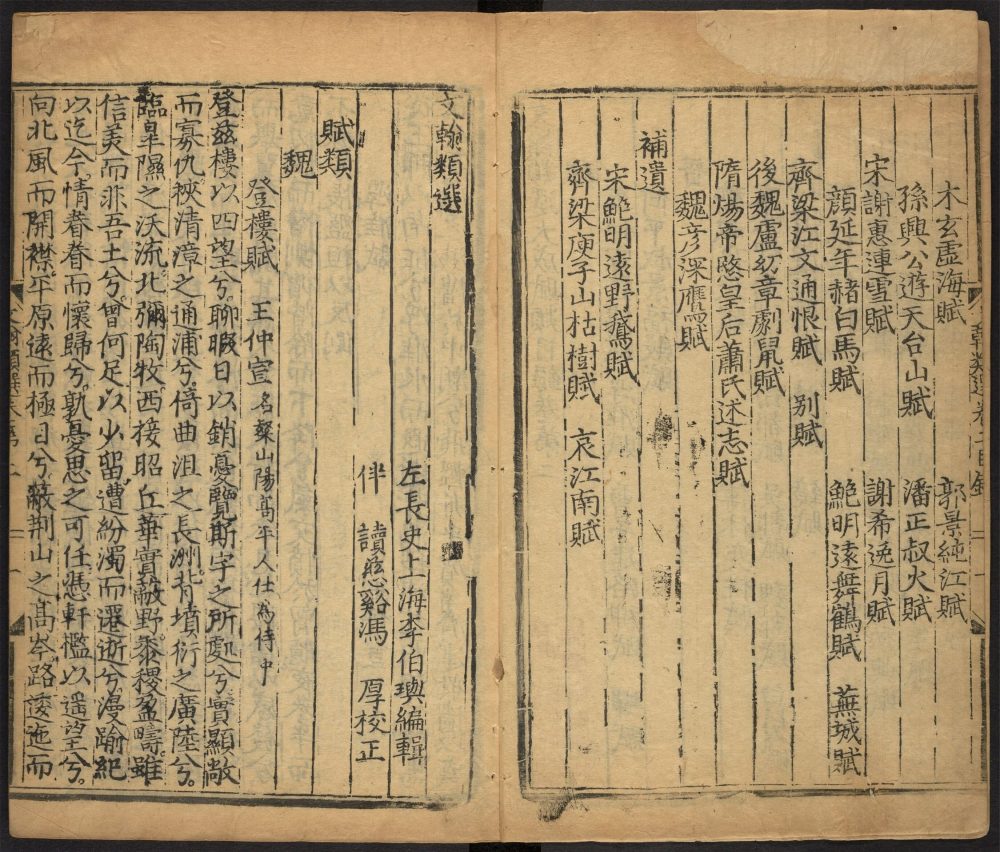 木玄虛海賦 郭景純江賦
孫興公遊天台山賦 潘正叔火賦
宋謝惠連雪賦 謝希逸月賦
顏延年赭白馬賦 鮑明遠舞鶴賦 蕪城賦
齊梁江文通恨賦 別賦
後魏盧𫝊章劇鼠賦
隋煬帝愍皇后蕭氏述志賦
魏彥深鷹賦
補遺
宋鮑明遠野鵝賦
齊梁庾子山枯樹賦 哀江南賦
文翰類選
左長史上海李伯璵編輯
伴讀慈谿馮 厚校正
賦類
魏
登樓賦 王仲宣名粲山陽高平人仕為侍中
登茲樓以四望兮聊暇日以銷憂覽斯宇之所處兮實顯敞
而寡仇挾清漳之通浦兮倚曲沮之長洲背墳衍之廣陸兮
臨皐隰之沃流北彌陶牧西接昭丘華實蔽野黍稷盈疇雖
信美而非吾土兮曾何足以少留遭紛濁而遷逝兮漫踰紀
以迄今情眷眷而懷歸兮孰憂思之可任憑軒檻以遥望兮
向北風而開襟平原遠而極目兮蔽荆山之高岑路逶迤而